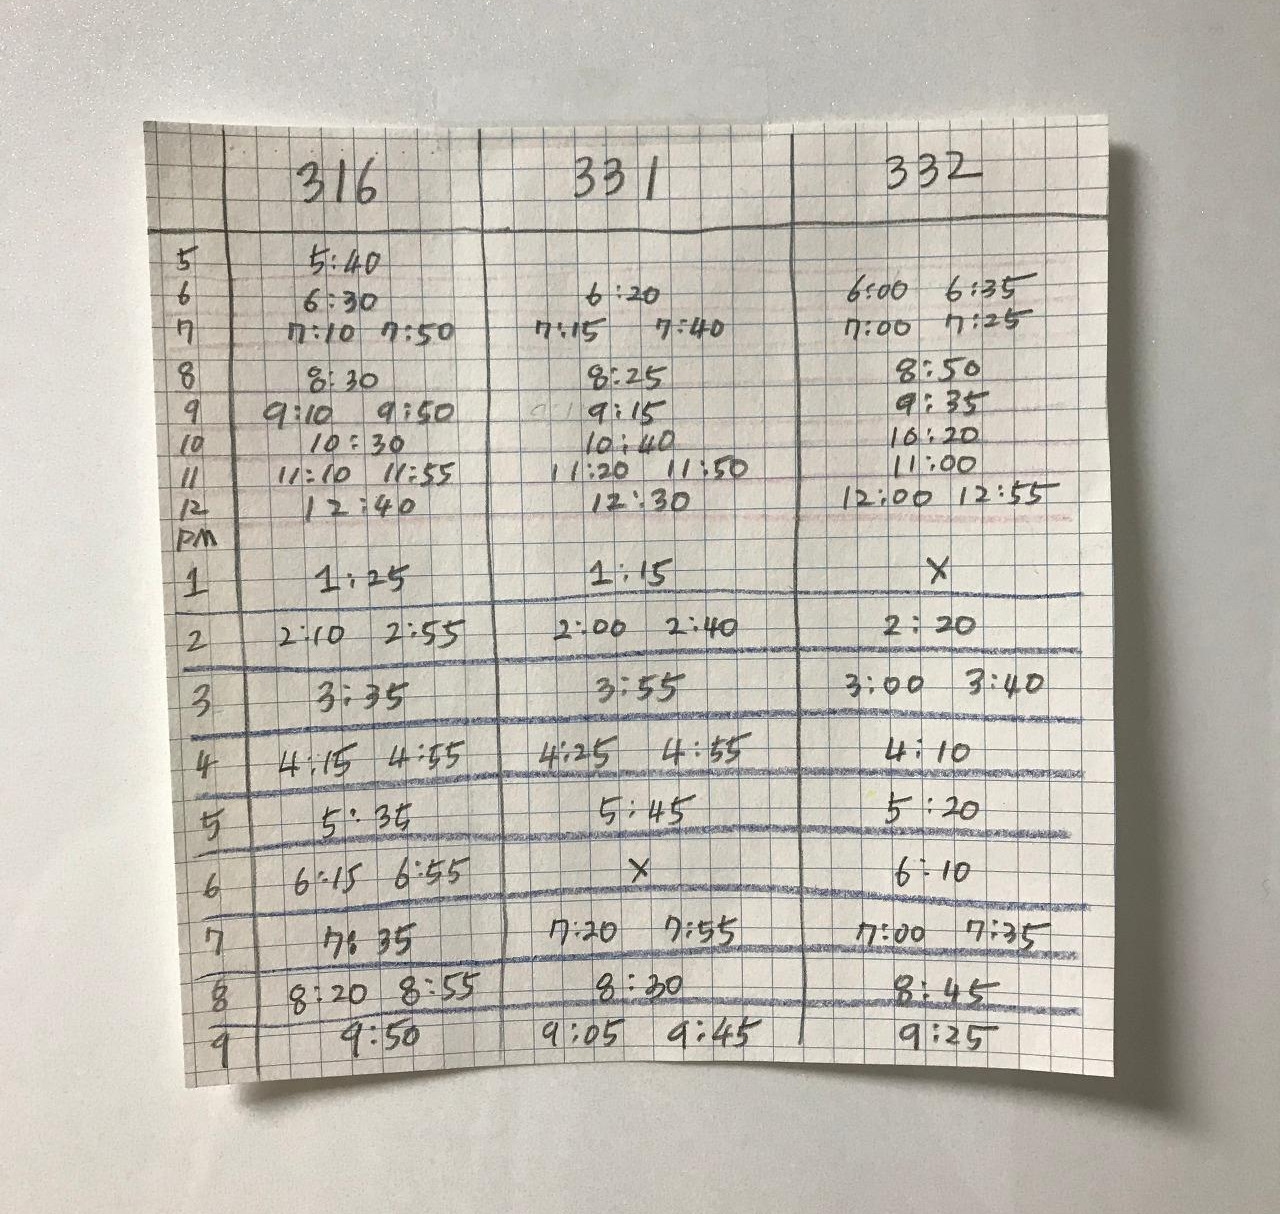 316 331 332
5 5:40
6 6:30 6:20 6:00 6:35
7 7:10 7:50 7:15 7:40 7:00 7:25
8 8:30 8:25 8:50
9 9:10 9:50 9:15 9:35
10 10:30 10:40 10:20
11 11:10 11:55 11:20 11:50 11:00
12 12:40 12:30 12:00 12:55
PM
1 1:25 1:15 X
2 2:10 2:55 2:00 2:40 2:20
3 3:35 3:55 3:00 3:40
4 4:15 4:55 4:25 4:55 4:10
5 5:35 5:45 5:20
6 6:15 6:55 X 6:10
7 7:35 7:20 7:55 7:00 7:35
8 8:20 8:55 8:30 8:45
9 9:50 9:05 9:45 9:25